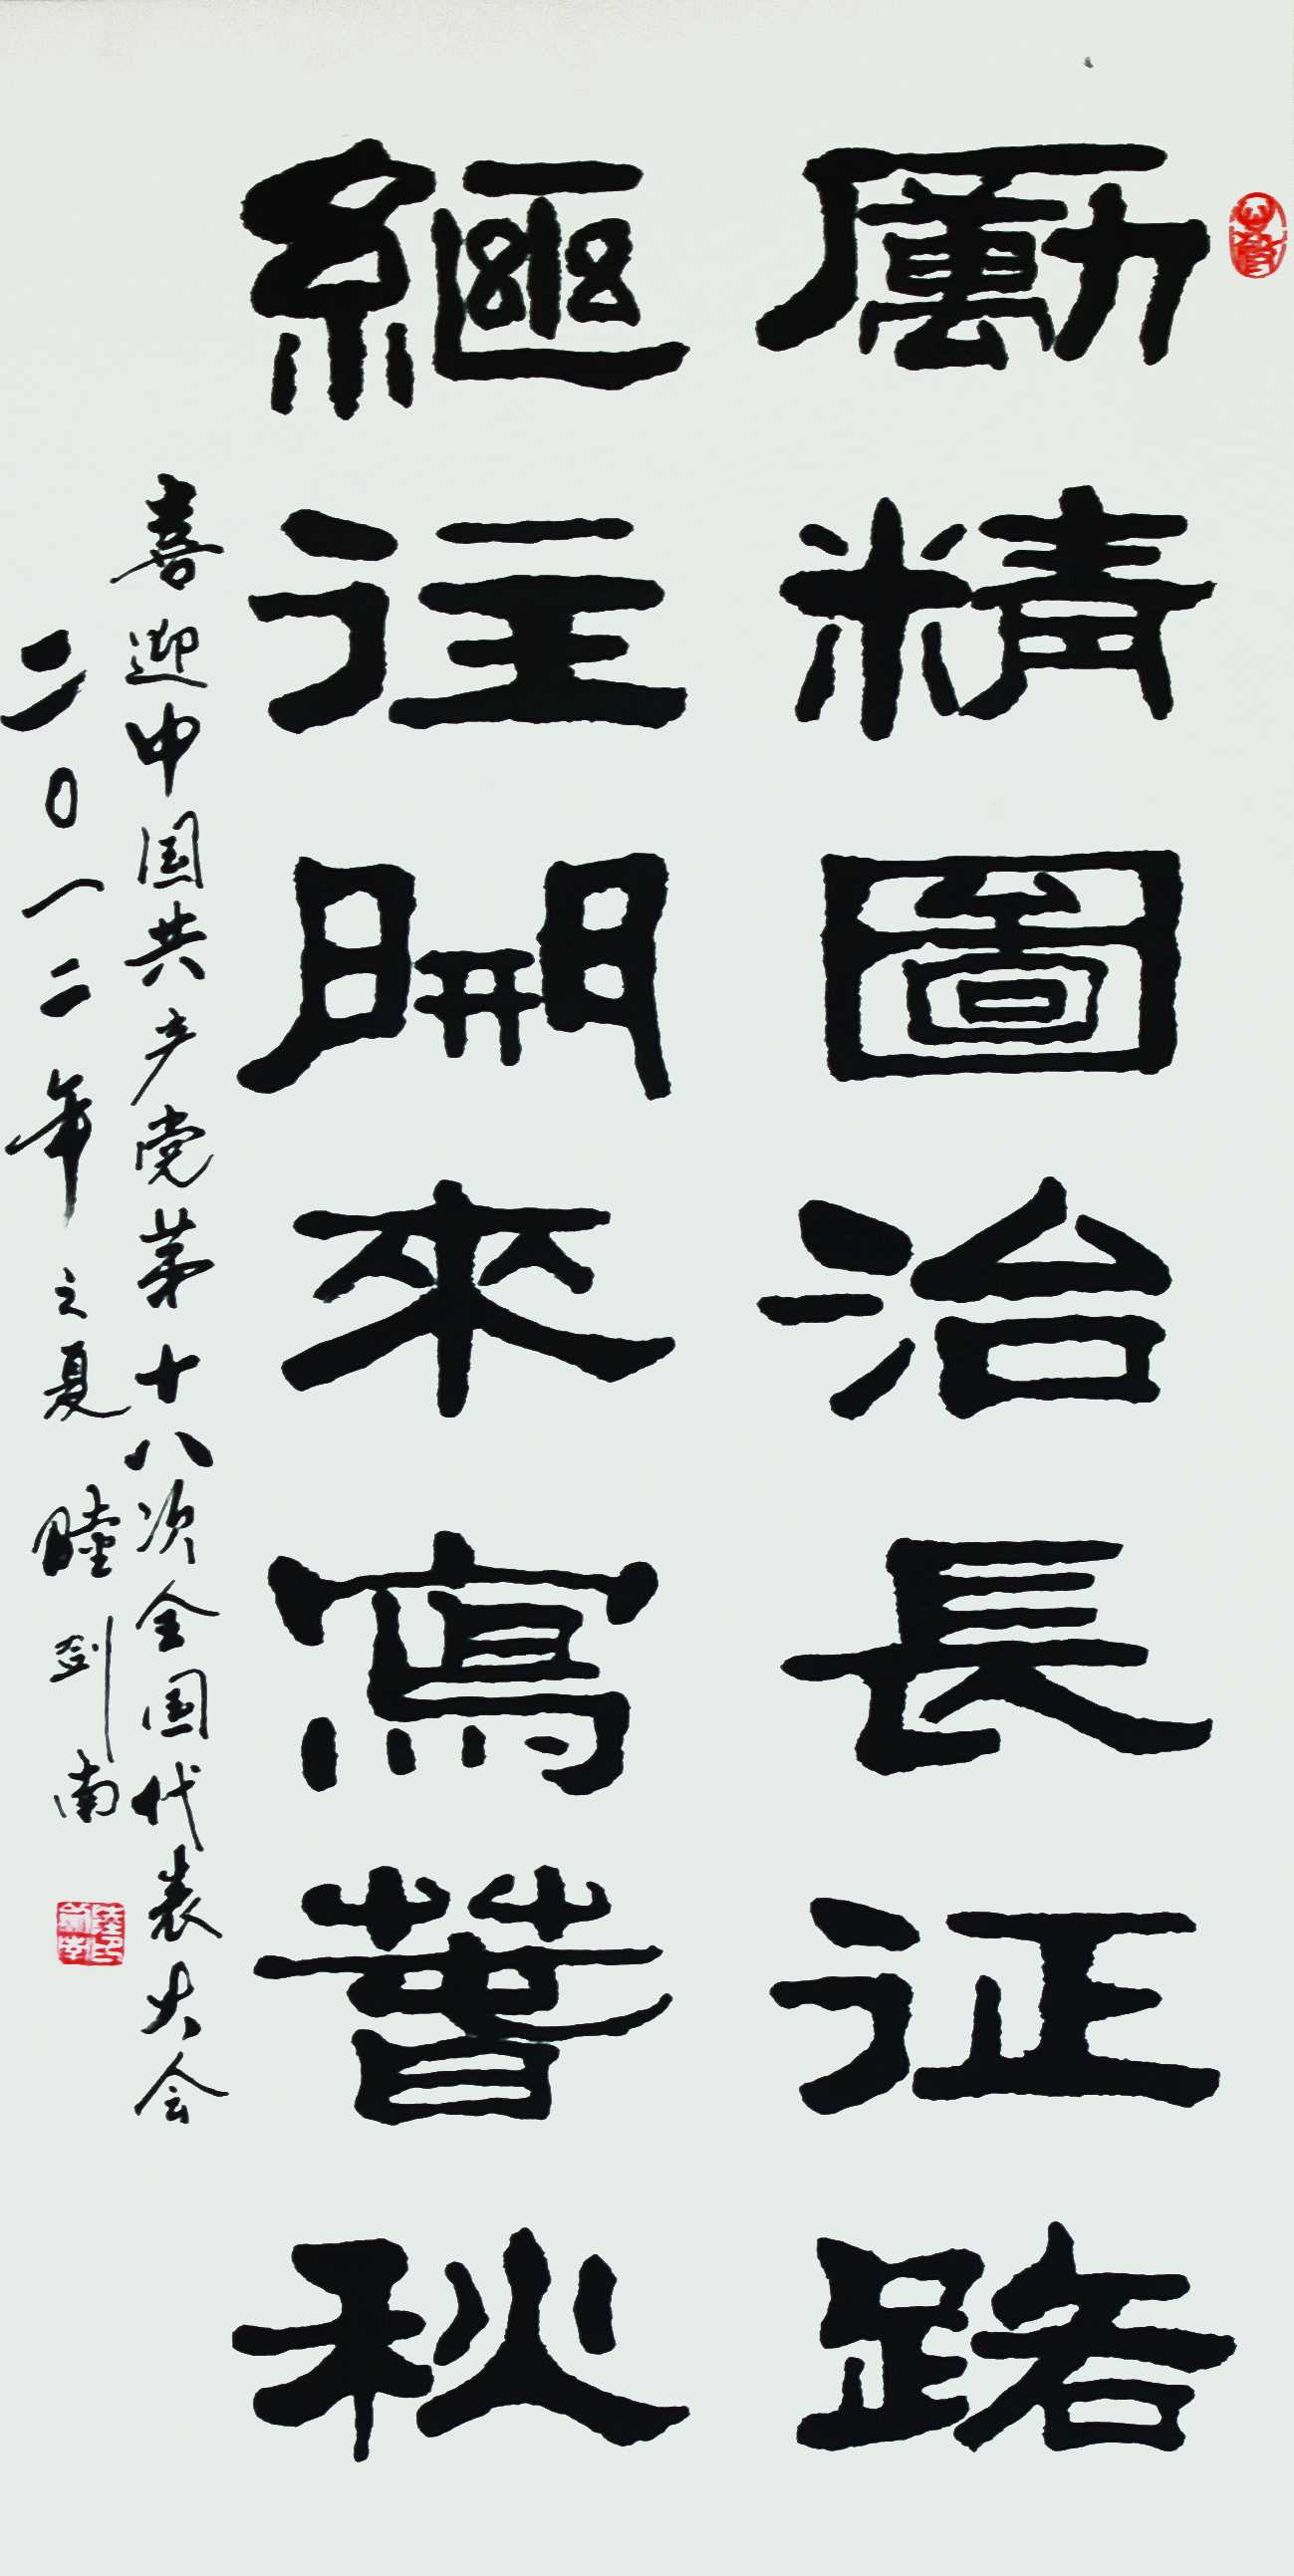 勵精圖治長征路
繼往開來寫春秋
喜迎中国共产党第十八次全国代表大会
二〇一二年之夏 剑南